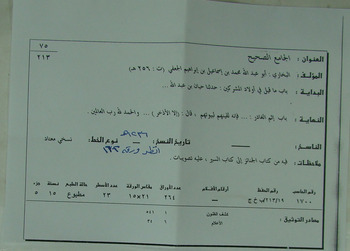 ٧٥
٢١٣
العنوان : الجامع الصحيح
المؤلف : البخاري : أبو عبد الله محمد بن إسماعيل بن إبراهيم الجعفي (ت : ٢٥٦ هـ)
البداية : باب ما قيل في أولاد المشركين : حدثنا حبان بن عبد الله ...
النهاية : باب إثم الغادر : ... فإنه لقينهم لبيوتهم ، قال : (إلا الإذخر) ... والحمد لله رب العالمين.
الناسخ : تاريخ النسخ : نوع الخط : نسخي معتاد
انظر ورقة
ملاحظات : فيه من كتاب الجنائز إلى كتاب السير ، عليه تصويبات .
رقم الحاسب رقم الحفظ أرقام الأفلام عدد الأوراق مقاس الورقة عدد الأسطر حالة الطبع مصنف جزء
١٧٠٠ ٢١٣/١٩ ف خ ج ٢٦٤ ٢١×١٥ ٢٣ مطبوع ١٥ ٥
مصادر التوثيق : كشف الظنون ١ ٥٤١
الأعلام ٦ ٣٤